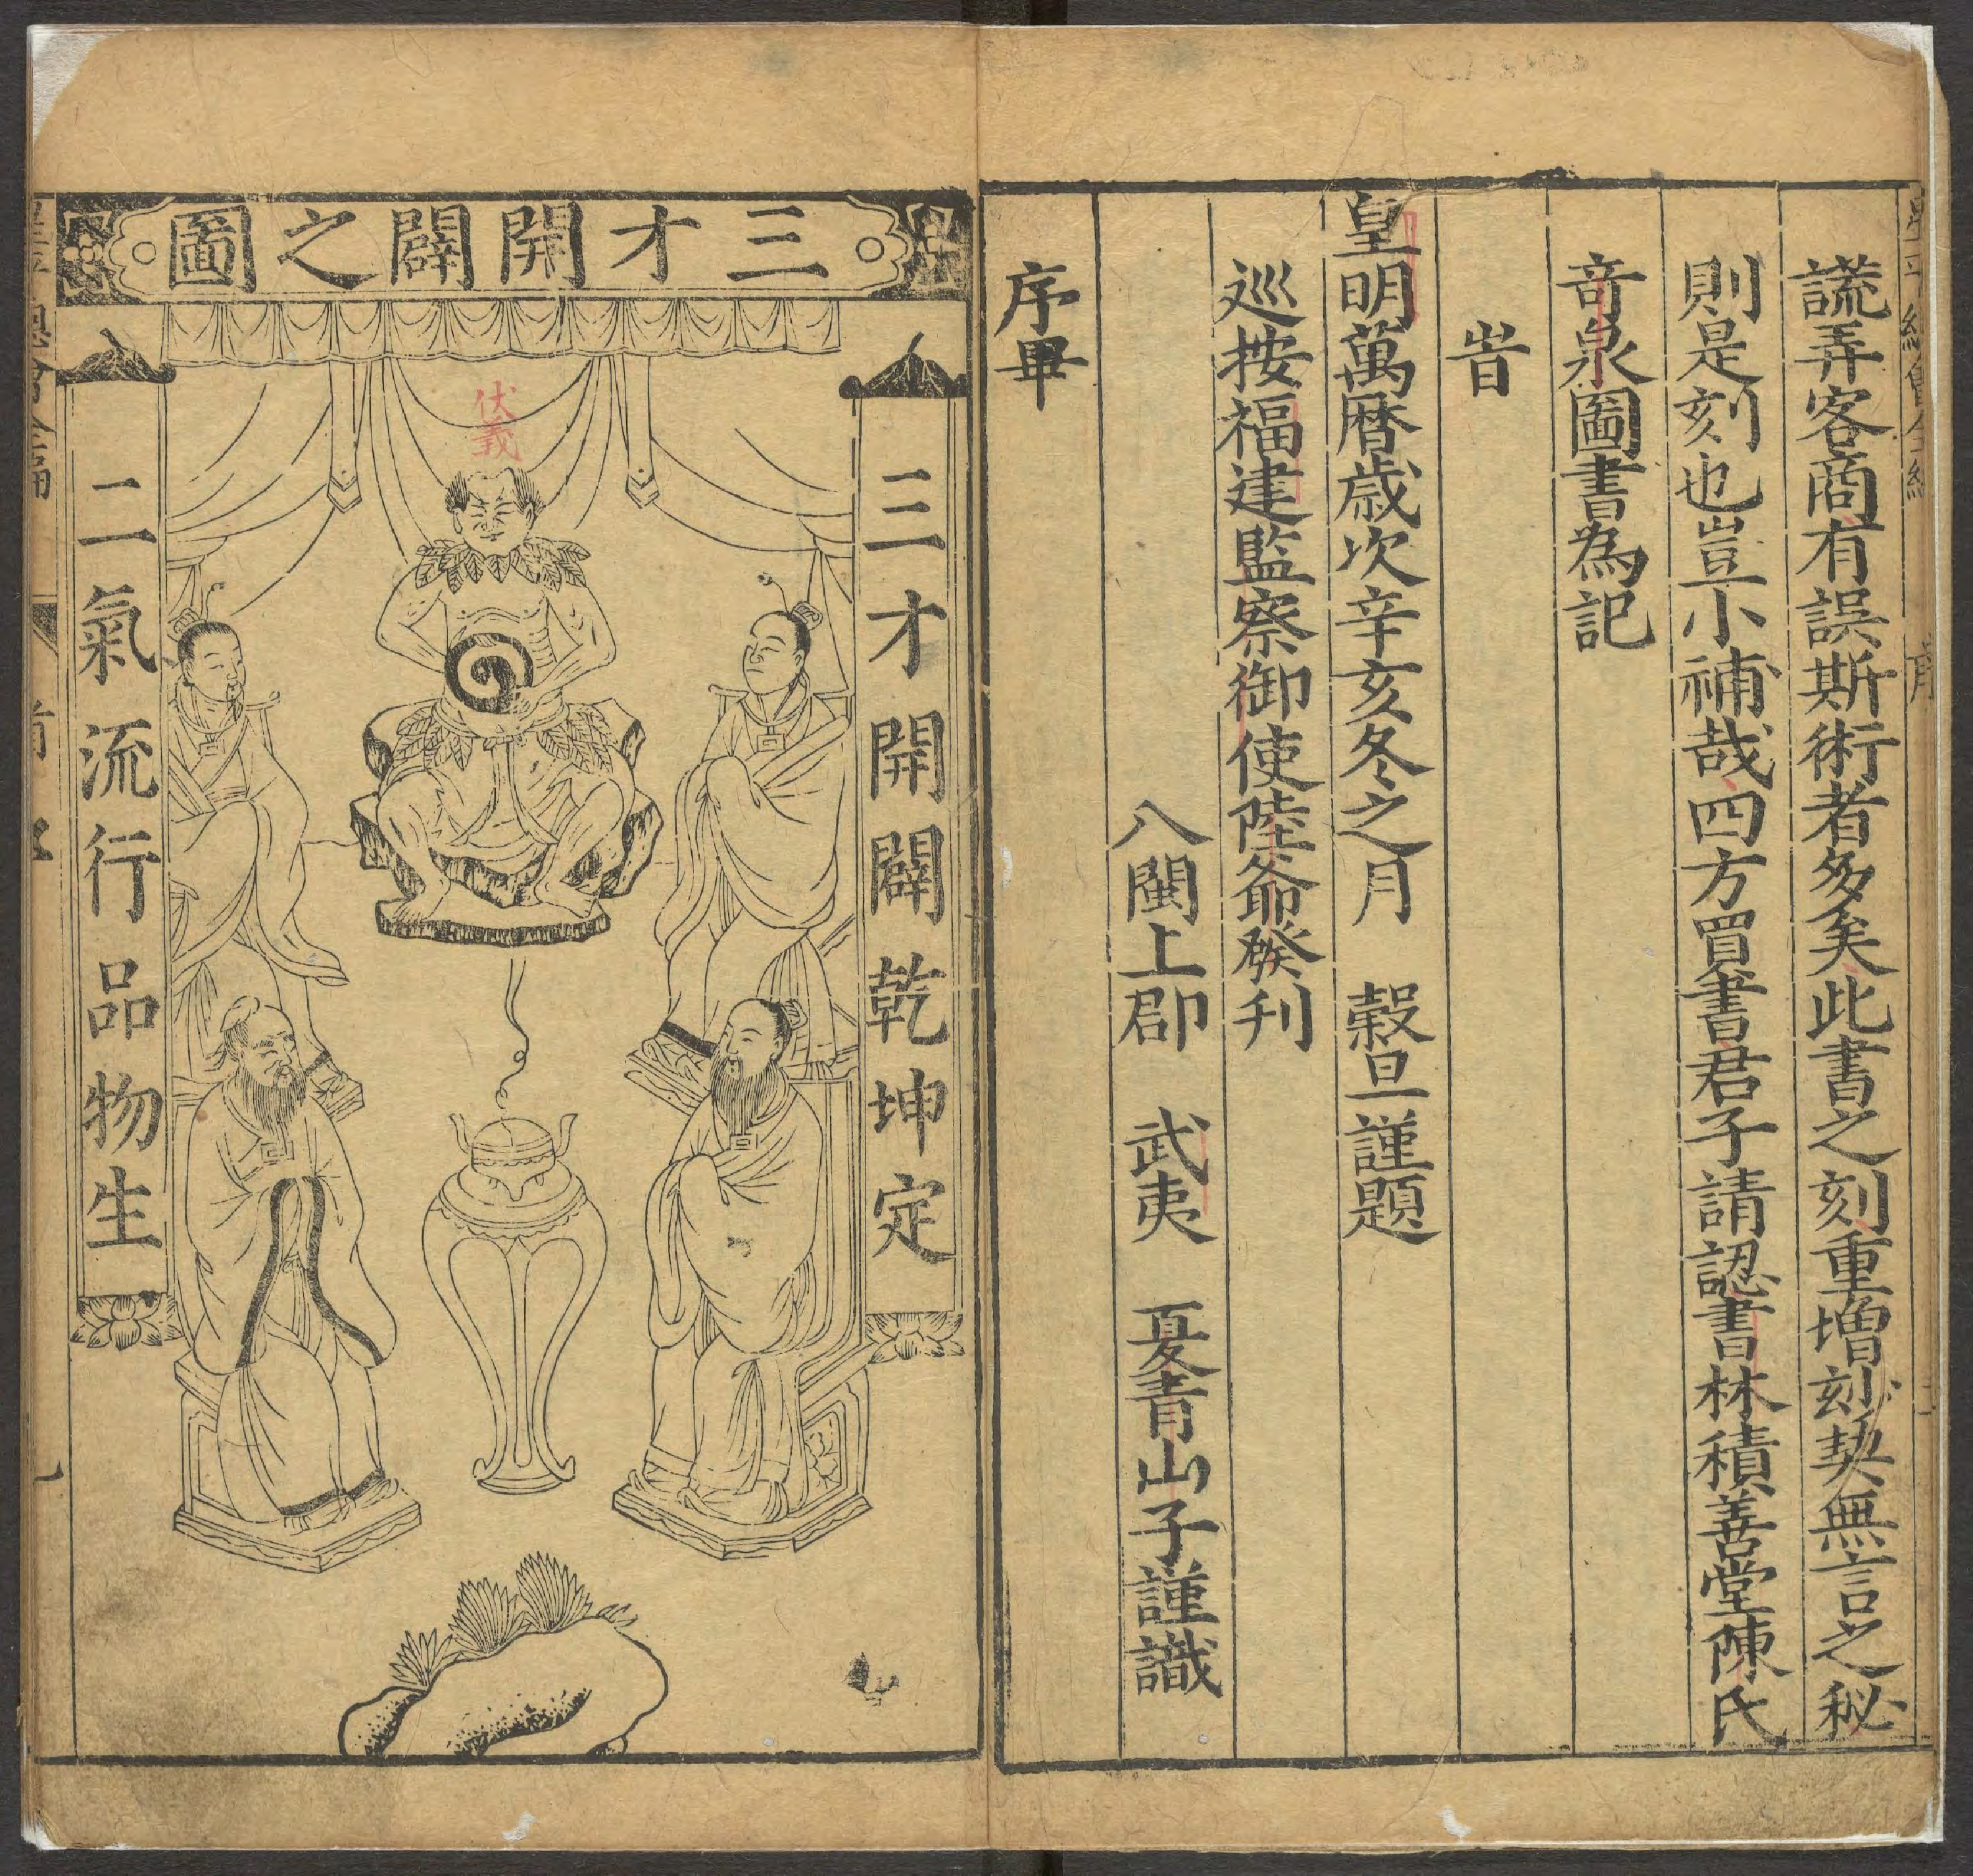 謊弄客商有誤斯術者多矣此書之刻重增刻契無言之秘
則是刻也豈小補哉四方買書君子請認書林積善堂陳氏
竒泉圖書為記
旹
皇明萬曆歲次辛亥冬之月 穀旦謹題
巡按福建監察御使陸爺發刋
八閩上郡 武夷 憂青山子謹識
序畢
三才開闢之圖
三才開闢乾坤定
伏義
二氣流行品物生